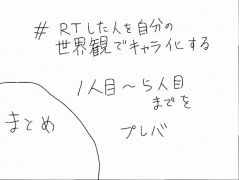 # RTした人を自分の
世界観でキャラ化する
1人目～5人目
までを
プレバ
まとめ